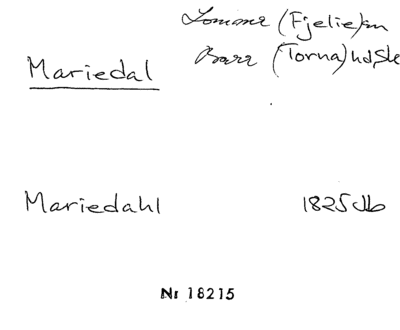 Lomma (Fjelie) sn
Mariedal
Bara (Torna) hd, Sk
Mariedahl 1825 Jb
Nr 18215